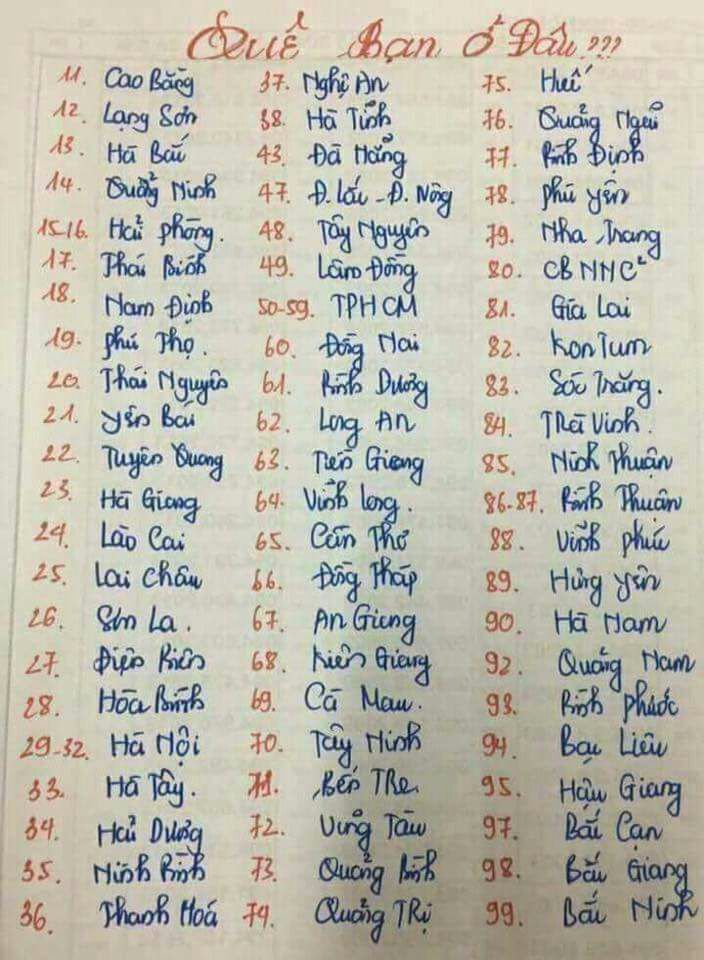 Quê Bạn ở Đâu???
11. Cao Bằng
12. Lạng Sơn
13. Hà Bắc
14. Quảng Ninh
15.16. Hải phòng.
17. Thái Bình
18. Nam Định
19. phú Thọ.
20. Thái Nguyên
21. Yên Bái
22. Tuyên Quang
23. Hà Giang
24. Lào Cai
25. Lai Châu
26. Sơn La.
27. Điện Biên
28. Hòa Bình
29-32. Hà Nội
33. Hà Tây.
34. Hải Dương
35. Ninh Bình
36. Thanh Hoá
37. Nghệ An
38. Hà Tĩnh
43. Đà Nẵng
47. Đ. Lắc - Đ. Nông
48. Tây Nguyên
49. Lâm Đồng
50-59. TPHCM
60. Đồng Nai
61. Bình Dương
62. Long An
63. Tiền Giang
64. Vĩnh Long.
65. Cần Thơ
66. Đồng Tháp
67. An Giang
68. Kiên Giang
69. Cà Mau.
70. Tây Ninh
71. Bến Tre
72. Vũng Tàu
73. Quảng Bình
74. Quảng Trị
75. Huế
76. Quảng Ngãi
77. Bình Định
78. phú yên
79. Nha Trang
80. CB NNC²
81. Gia Lai
82. Kon Tum
83. Sóc Trăng.
84. Trà Vinh.
85. Ninh Thuận
86-87. Bình Thuận
88. Vĩnh phúc
89. Hưng yên
90. Hà Nam
92. Quảng Nam
93. Bình phước
94. Bạc Liêu
95. Hậu Giang
97. Bắc Cạn
98. Bắc Giang
99. Bắc Ninh